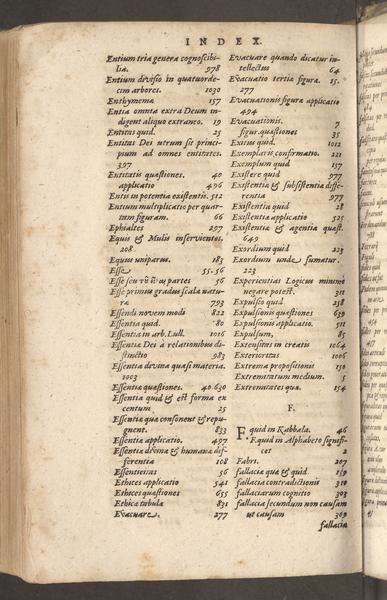 INDEX.
Entium tria genera cognoscibi-
lia. 978
Entium divisio in quatuorde-
cim arbores. 1030
Enthymema 157
Entia omnia extra Deum in-
digent aliquo extraneo. 19
Entitas quid. 25
Entitas Dei utrum sit princi-
pium ad omnes entitates.
397
Entitatis quæstiones. 40
applicatio 496
Entis in potentia existentis. 512
Entium multiplicatio per quar-
tam figuram. 66
Ephialtes 297
Equis & Mulis inservientes.
208.
Equus uniparus. 183
Esse 55-56
Esse seu partes 56
Esse primus gradus scala natu-
ræ 793
Essendi novem modi 822
Essentia quid. 80
Essentia in arb. Lull. 1016
Essentia Dei à relationibus di-
stinctio 983
Essentia divina quasi materia.
1003
Essentia quæstiones. 40.630
Essentia quid & est forma ex
centum 25
Essentia qua consonent & repu-
gnent. 833
Essentia applicatio. 497
Essentia divina & humana dif-
ferentia 108
Essentieitas 56
Ethices applicatio 541
Ethices quæstiones 655
Ethica tabula 831
Evacuare. 277
Evacuare quando dicatur in-
tellectus 64
Evacuatio tertia figura. 15.
277
Evacuationis figura applicatio
494
Evacuationis. 7
figur. quæstiones 35
Exitus quid. 1012
Exemplaris confirmatio. 221
Exemplum quid 157
Existere quid 977
Existentia & subsistentia diffe-
rentia 977
Existentia quid 28
Existentia applicatio 525
Existentia & agentia quæst.
649
Exordium quid 223
Exordium unde sumatur.
223
Experientias Logicus minimè
negare potest. 311
Expulsio quid 258
Expulsionis quæstiones 639
Expulsionis applicatio. 511
Expulsum, 85
Extensitas in creatis 1064
Exterioritas 1006
Extrema propositionis 150
Extremitatum medium. 5
Extremitates qua. 154
F.
F quid in Kabbala. 46
F. quid in Alphabeto signifi-
cet 2
Fabri. 207
fallacia qua & quid 159
fallacia contradictionis 310
fallaciarum cognitio 303
fallacia secundum non causam
ut causam 309
fallacia